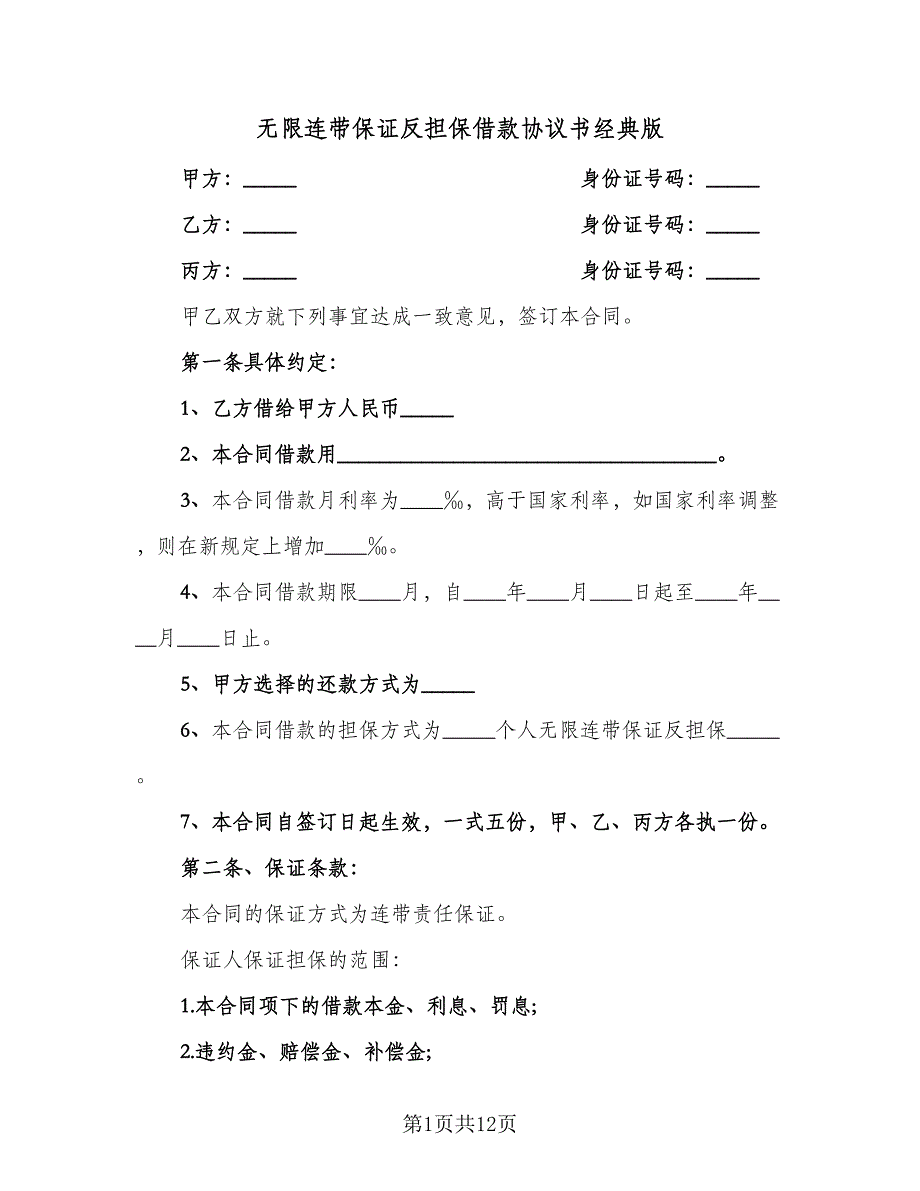 无限连带保证反担保借款协议书经典版
甲方：_____ 身份证号码：_____
乙方：_____ 身份证号码：_____
丙方：_____ 身份证号码：_____
甲乙双方就下列事宜达成一致意见，签订本合同。
第一条具体约定：
1、乙方借给甲方人民币_____
2、本合同借款用____________________________________。
3、本合同借款月利率为____‰，高于国家利率，如国家利率调整
，则在新规定上增加____‰。
4、本合同借款期限____月，自____年____月____日起至____年__
__月____日止。
5、甲方选择的还款方式为_____
6、本合同借款的担保方式为_____个人无限连带保证反担保_____
。
7、本合同自签订日起生效，一式五份，甲、乙、丙方各执一份。
第二条、保证条款：
本合同的保证方式为连带责任保证。
保证人保证担保的范围：
1.本合同项下的借款本金、利息、罚息;
2.违约金、赔偿金、补偿金;
第1页共12页